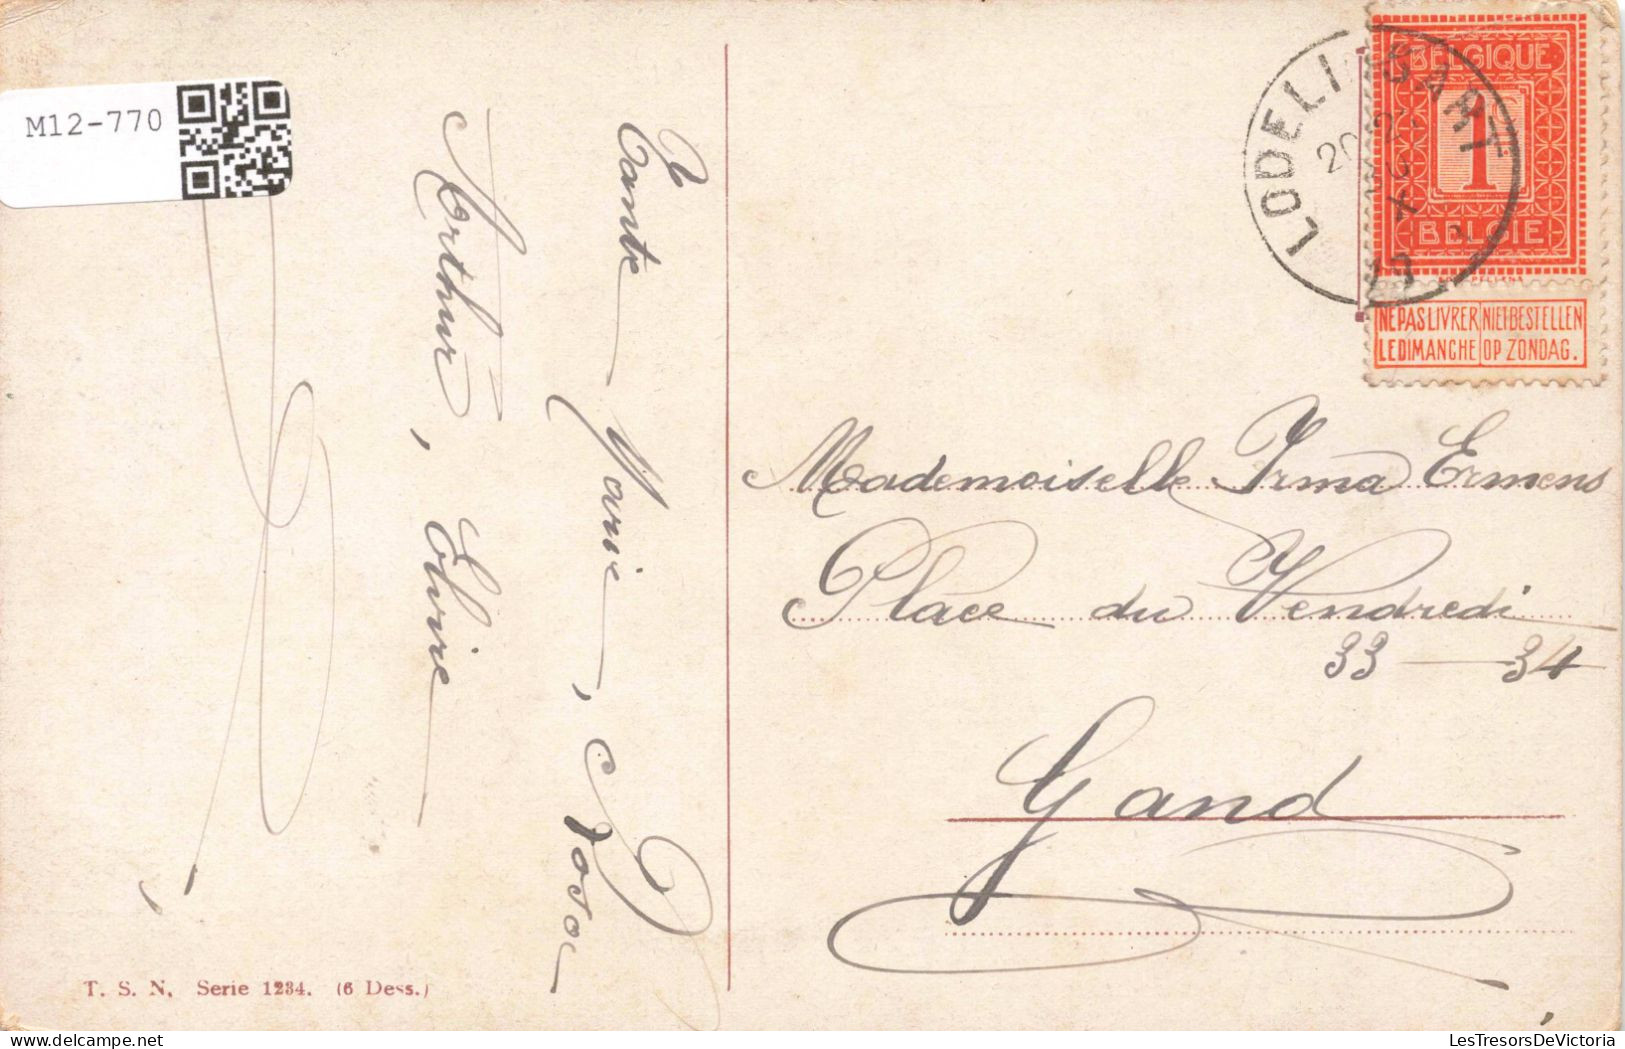 M12-770
Tante Marie, Rosa
Arthur, Elvire
T. S. N. Serie 1234. (6 Dess.)
LODELINSART
BELGIQUE
1
BELGIE
NE PAS LIVRER LE DIMANCHE
NIET BESTELLEN OP ZONDAG.
Mademoiselle Irma Ermens
Place du Vendredi
33 — 34
Gand
LesTresorsDeVictoria